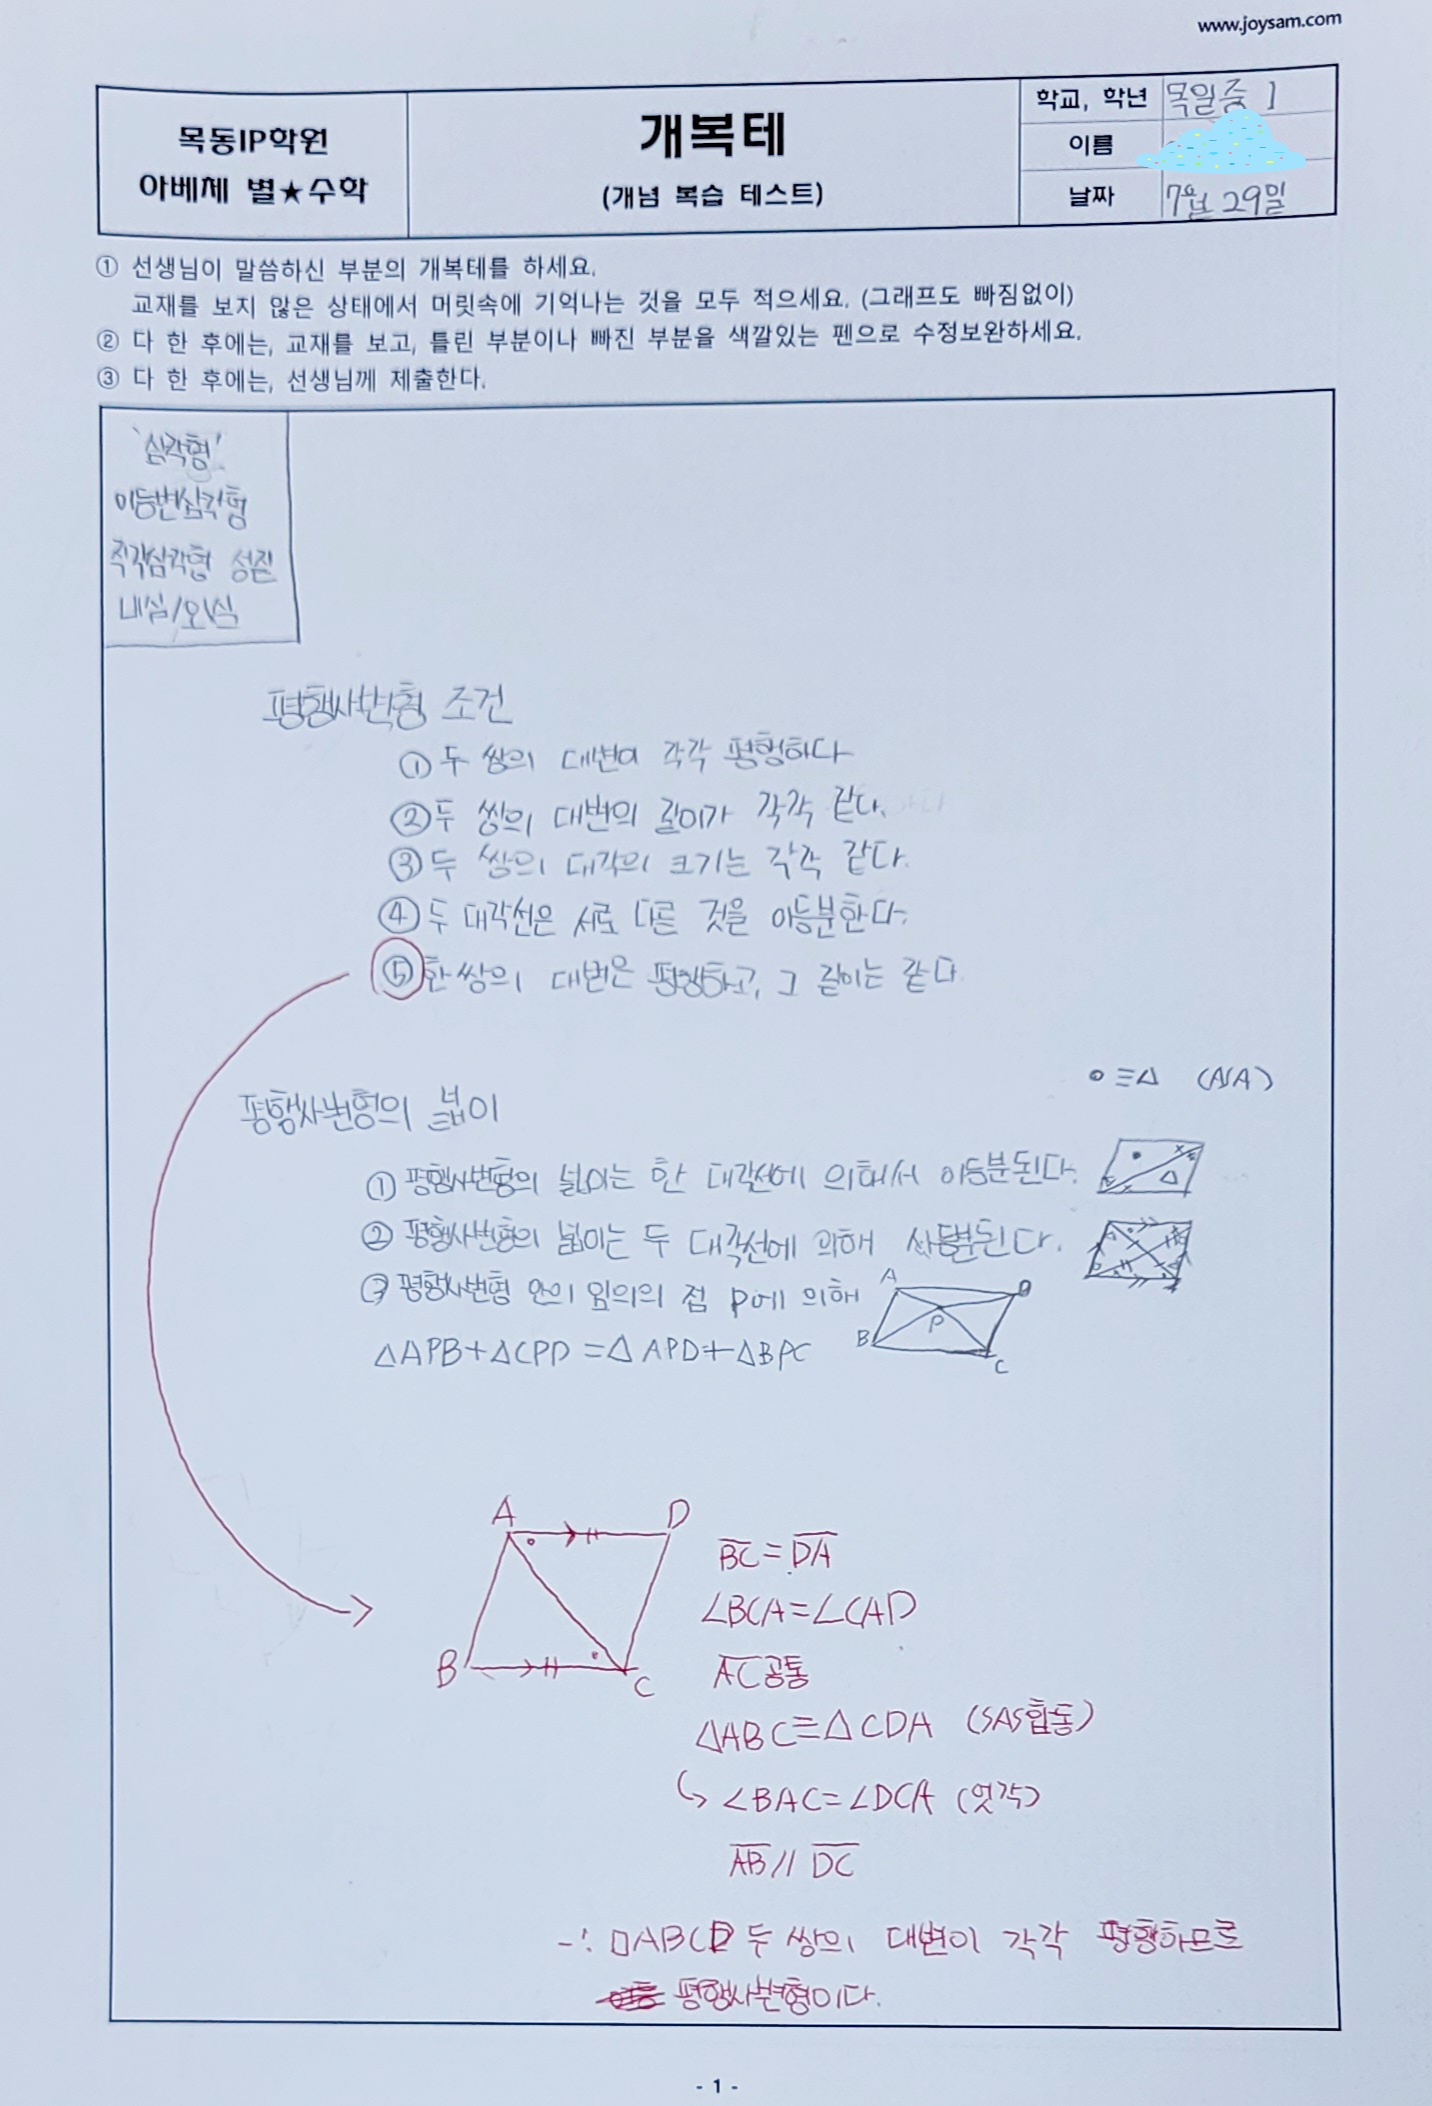 www.joysam.com
목동IP학원
아베체 별★수학
개복테
(개념 복습 테스트)
학교, 학년 목일중 1
이름
날짜 7월 29일
① 선생님이 말씀하신 부분의 개복테를 하세요.
교재를 보지 않은 상태에서 머릿속에 기억나는 것을 모두 적으세요. (그래프도 빠짐없이)
② 다 한 후에는, 교재를 보고, 틀린 부분이나 빠진 부분을 색깔있는 펜으로 수정보완하세요.
③ 다 한 후에는, 선생님께 제출한다.
'삼각형'
이등변삼각형
직각삼각형 성질
내심/외심
평행사변형 조건
① 두 쌍의 대변이 각각 평행하다
② 두 쌍의 대변의 길이가 각각 같다.
③ 두 쌍의 대각의 크기는 각각 같다.
④ 두 대각선은 서로 다른 것을 이등분한다.
⑤ 한 쌍의 대변은 평행하고, 그 길이는 같다.
○≡△ (ASA)
평행사변형의 넓이
① 평행사변형의 넓이는 한 대각선에 의해서 이등분된다.
② 평행사변형의 넓이는 두 대각선에 의해 사등분된다.
③ 평행사변형 안의 임의의 점 P에 의해
△APB+△CPD=△APD+△BPC
A D
P
B C
A D
B C
BC=DA
∠BCA=∠CAD
AC공통
△ABC≡△CDA (SAS합동)
↳ ∠BAC=∠DCA (엇각)
AB // DC
∴ □ABCD 두 쌍의 대변이 각각 평행하므로
평행사변형이다.
- 1 -